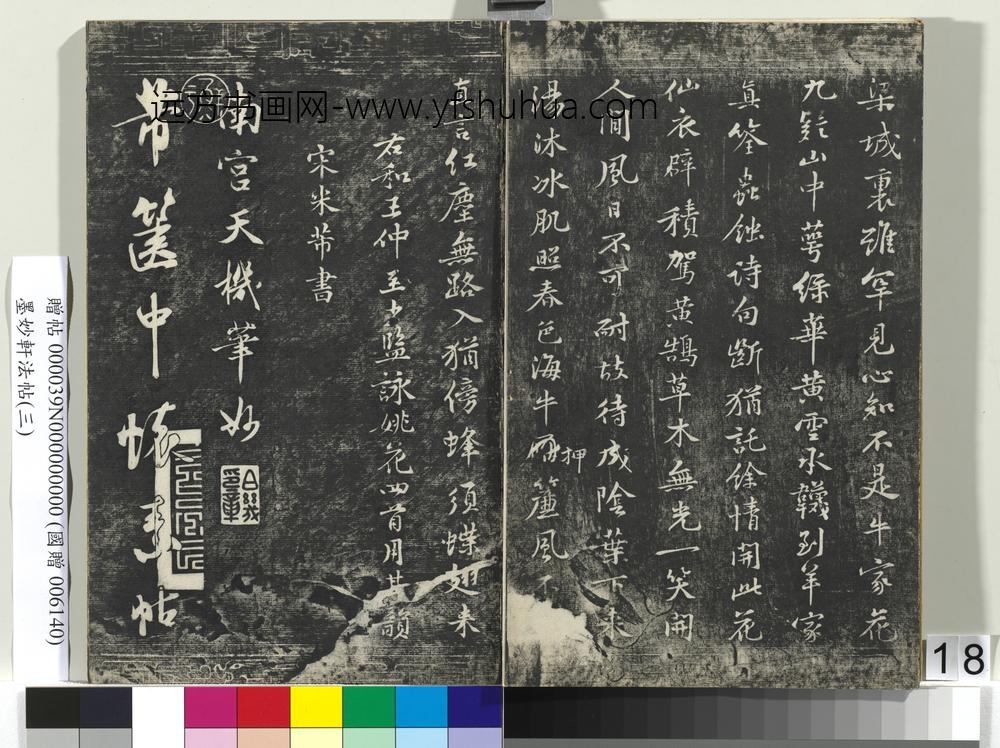 梁城裏誰罕見心知不是牛家花
九疑山中萼綠華黃雲承韈到羊家
真筌蟲蝕詩句斷猶託餘情開此花
仙衣襞積駕黃鵠草木無光一笑開
人間風日不可耐故待成陰葉下來
湯沐冰肌照春色海牛
押
簾風不
紅塵無路入猶傍蜂須蝶翅來
右和王仲至少監詠姚花四首用其韻
宋米芾書
南宮天機筆妙
芾篋中懷素帖
远方书画网-www.yfshuhua.com
贈帖 000039N000000000 (國贈 006140)
墨妙軒法帖(三)
18